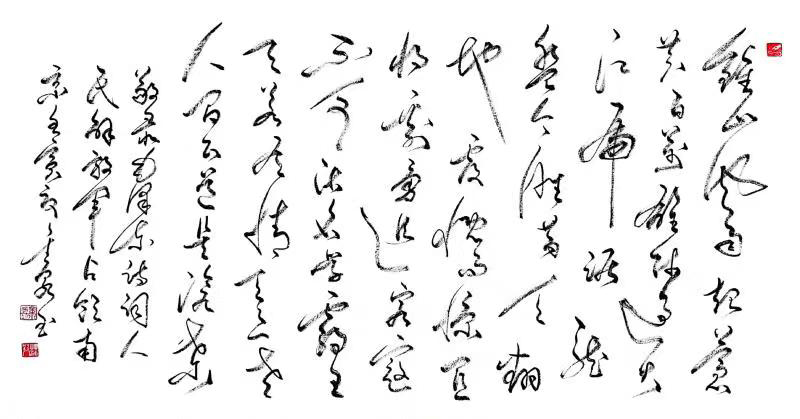 鍾山风雨起蒼
黄百万雄师过大
江虎踞龙
盘今胜昔天翻
地覆慨而慷宜
将剩勇追穷寇
不可沽名学霸王
天若有情天亦老
人间正道是沧桑
敬录毛泽东诗词人
民解放军占领南
京壬寅书